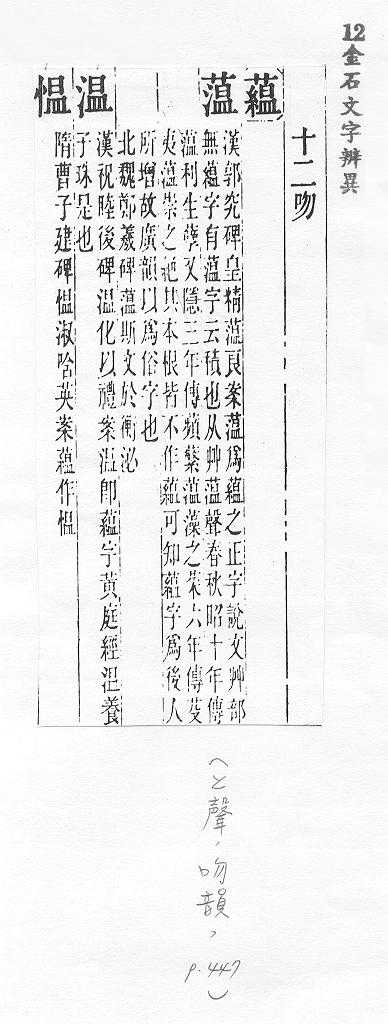 12金石文字辨異
十二吻
蘊
薀 漢郭究碑皇精薀良案薀爲蘊之正字說文艸部
無蘊字有薀字云積也从艸薀聲春秋昭十年傳
薀利生孽又隱三年傳蘋蘩薀藻之菜六年傳芟
夷薀崇之絶其本根皆不作蘊可知蘊字爲後人
所增故廣韻以爲俗字也
北魏鄭羲碑薀斯文於衡泌
温 漢祝睦後碑温化以禮案温卽蘊字黃庭經温養
子珠是也
愠 隋曹子建碑愠淑含英案蘊作愠
(上聲,吻韻,
p.447)